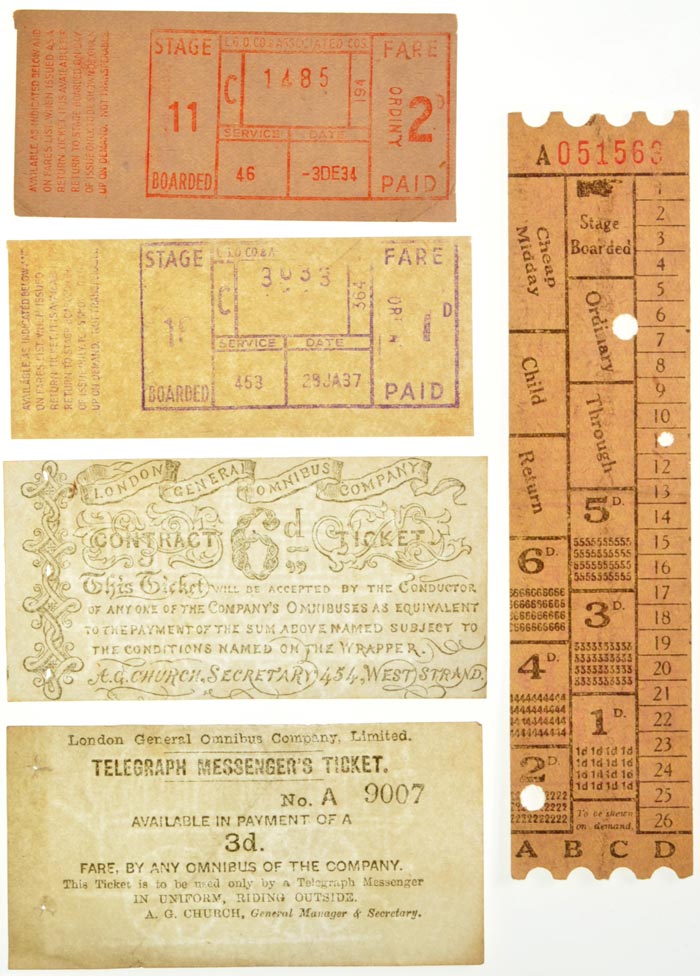 AVAILABLE AS INDICATED BELOW AND
ON FARES LIST WHEN ISSUED AS A
RETURN TICKET, IT IS AVAILABLE FOR
RETURN TO STAGE BOARDED ON DAY
OF ISSUE ONLY. TO BE SHOWN OR GIVEN
UP ON DEMAND. NOT TRANSFERABLE
STAGE
11
BOARDED
L.G.O. CO & ASSOCIATED COS.
C
1485
194
SERVICE
46
DATE
-3DE34
FARE
ORDINY
2D
PAID
AVAILABLE AS INDICATED BELOW AND
ON FARES LIST WHEN ISSUED
RETURN TICKET, IT IS AVAILABLE
RETURN TO STAGE
OF ISSUE ONLY.
UP ON DEMAND. NOT TRANSFERABLE
STAGE
BOARDED
L.G.O. CO &
C
364
SERVICE
453
DATE
28JA37
FARE
D
PAID
LONDON GENERAL OMNIBUS COMPANY
CONTRACT 6d TICKET
This Ticket WILL BE ACCEPTED BY THE CONDUCTOR
OF ANY ONE OF THE COMPANY'S OMNIBUSES AS EQUIVALENT
TO THE PAYMENT OF THE SUM ABOVE NAMED SUBJECT TO
THE CONDITIONS NAMED ON THE WRAPPER.
A.G. CHURCH, SECRETARY, 454, WEST STRAND.
London General Omnibus Company, Limited.
TELEGRAPH MESSENGER'S TICKET.
No. A 9007
AVAILABLE IN PAYMENT OF A
3d.
FARE, BY ANY OMNIBUS OF THE COMPANY.
This Ticket is to be used only by a Telegraph Messenger
IN UNIFORM, RIDING OUTSIDE.
A. G. CHURCH, General Manager & Secretary.
A 051563
Cheap
Midday
Child
Return
6D.
66666666666
4D.
44444444444
2D.
Stage
Boarded
Ordinary
Through
5D.
55555555555
3D.
33333333333
1D.
1d 1d 1d 1d
1d 1d 1d 1d
1d 1d 1d 1d
1d 1d 1d 1d
To be shewn
on demand.
1
2
3
4
5
6
7
8
9
10
12
13
14
15
16
17
18
19
20
21
22
23
24
25
26
A B C D